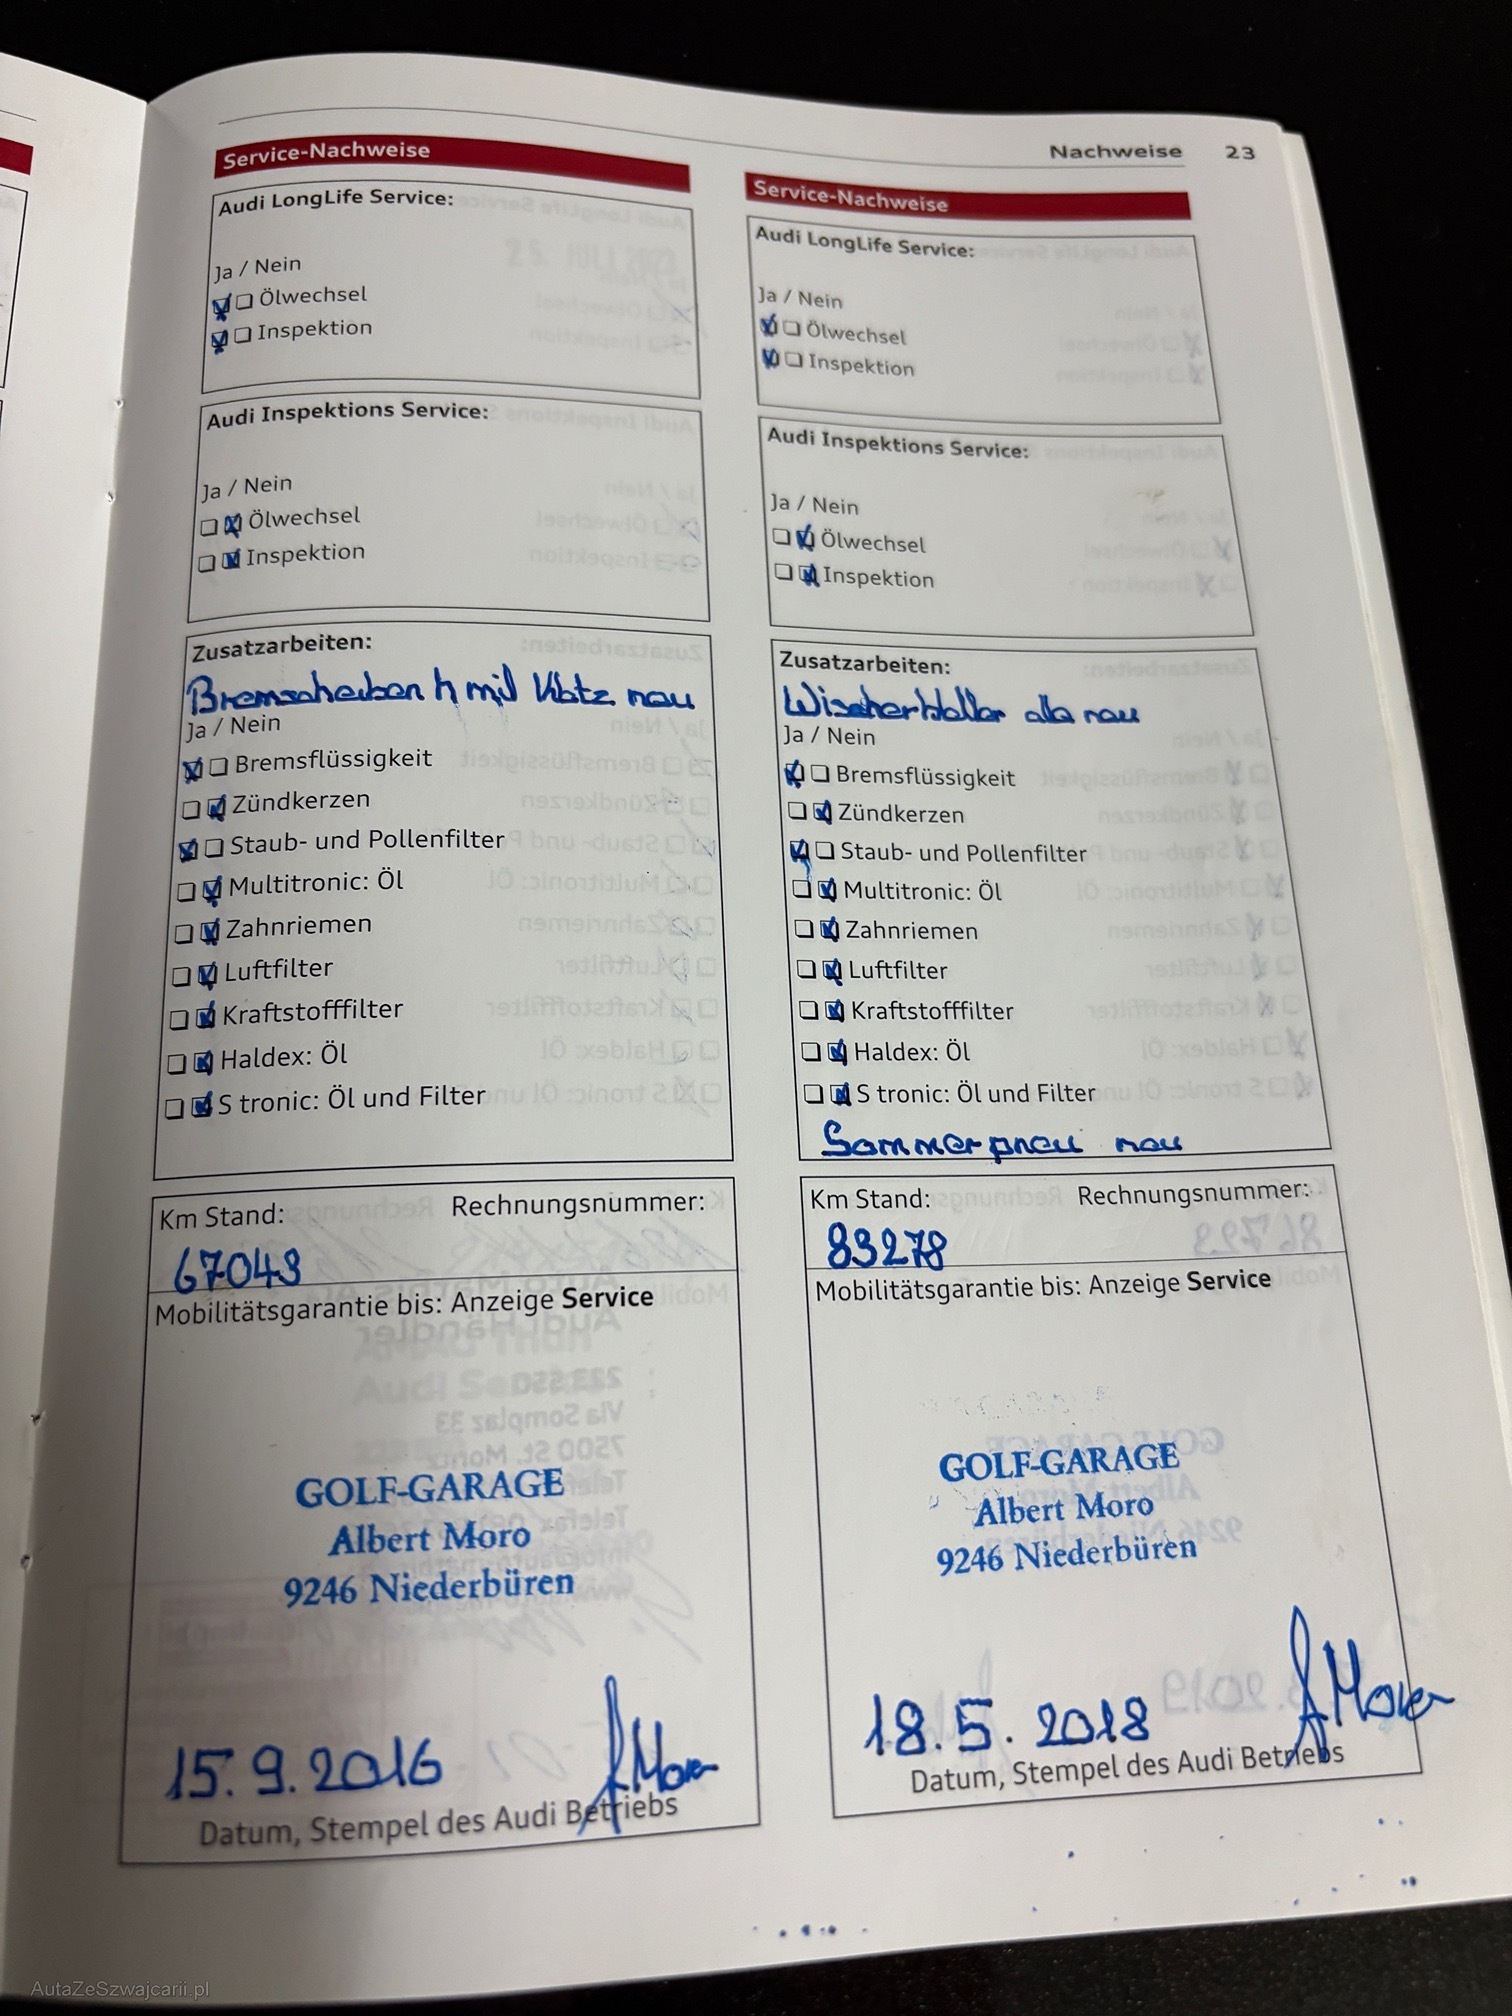 Nachweise 23
Service-Nachweise
Audi LongLife Service:
Ja / Nein
Ölwechsel
Inspektion
Audi Inspektions Service:
Ja / Nein
Ölwechsel
Inspektion
Zusatzarbeiten:
Bremscheiben h mit Klötz neu
Ja / Nein
Bremsflüssigkeit
Zündkerzen
Staub- und Pollenfilter
Multitronic: Öl
Zahnriemen
Luftfilter
Kraftstofffilter
Haldex: Öl
S tronic: Öl und Filter
Km Stand: Rechnungsnummer:
67043
Mobilitätsgarantie bis: Anzeige Service
GOLF-GARAGE
Albert Moro
9246 Niederbüren
15.9.2016 A Moro
Datum, Stempel des Audi Betriebs
Service-Nachweise
Audi LongLife Service:
Ja / Nein
Ölwechsel
Inspektion
Audi Inspektions Service:
Ja / Nein
Ölwechsel
Inspektion
Zusatzarbeiten:
Wischerblätter alle neu
Ja / Nein
Bremsflüssigkeit
Zündkerzen
Staub- und Pollenfilter
Multitronic: Öl
Zahnriemen
Luftfilter
Kraftstofffilter
Haldex: Öl
S tronic: Öl und Filter
Sommerpneu neu
Km Stand: Rechnungsnummer:
83278
Mobilitätsgarantie bis: Anzeige Service
GOLF-GARAGE
Albert Moro
9246 Niederbüren
18.5.2018 A Moro
Datum, Stempel des Audi Betriebs
AutaZeSzwajcarii.pl